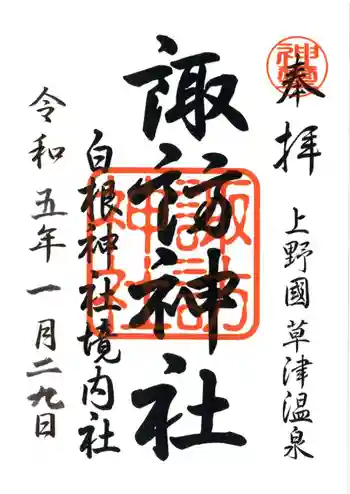 奉拝
上野國草津温泉
諏訪神社
白根神社境内社
令和五年一月二九日
諏訪神社